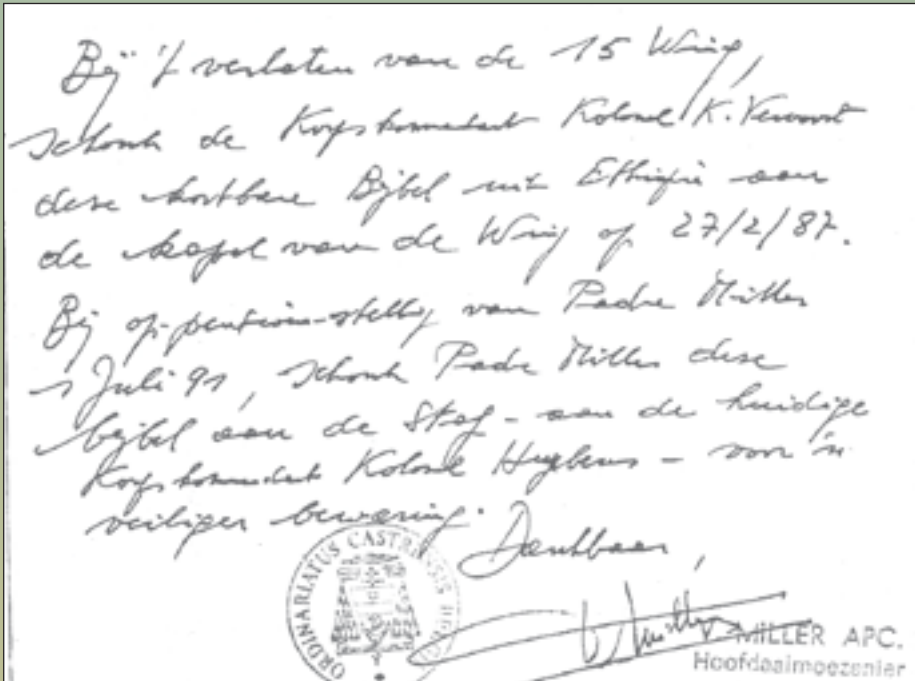 Bij 't verlaten van de 15 Wing,
schonk de Korpskomandant Kolonel K. Vervoort
deze kostbare Bijbel uit Ethiopië aan
de kapel van de Wing op 27/2/87.
Bij op-pensioen-stelling van Padre Miller
1 Juli 91, schonk Padre Miller deze
bijbel aan de Staf - aan de huidige
Korpskomandant Kolonel Huybens - voor 'n
veiliger bewaring.
Dankbaar,
ORDINARIATUS CASTRENSIS
MILLER APC.
Hoofdaalmoezenier